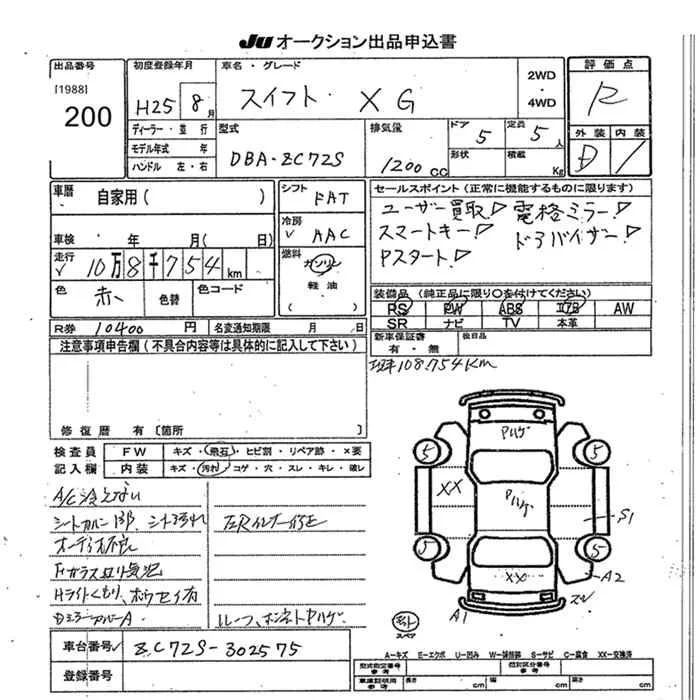 JU オークション出品申込書
出品番号
[1988]
200
初度登録年月
H25 8月
車名・グレード
スイフト XG
2WD
・
4WD
評価点
R
外装 内装
D /
ディーラー・並行
モデル年式 年
ハンドル 左・右
型式
DBA-ZC72S
排気量
1200cc
ドア 5
形状
定員 5人
積載 Kg
車歴
自家用( )
車検 年 月( 日)
走行
✓ 10万8千754km
色 赤
色替
色コード
R券 10400円
名変通知期限 月 日
シフト FAT
冷房 ✓ AAC
燃料
ガソリン
・
軽油
( )
セールスポイント(正常に機能するものに限ります)
ユーザー買取! 電格ミラー!
スマートキー! ドアバイザー!
Pスタート!
装備品(純正品に限り○を付けてください)
PS PW ABS エアB AW
SR ナビ TV 本革
新車保証書
有・無
後日品
108.754Km
注意事項申告欄(不具合内容等は具体的に記入して下さい)
修復歴 有〔箇所 〕
検査員
記入欄
FW キズ・飛石・ヒビ割・リペア跡・×要
内装 キズ・汚れ・コゲ・穴・スレ・キレ・破レ
A/C冷えない
オーディオ不良
Fガラス
Hライトくもり、
Dミラーカバー A
ルーフ、ボンネット
Pハゲ
Pハゲ
XX
XX
S1
A2
A1
5
5
5
5
スペア
車台番号✓ ZC72S-302575
登録番号
A-キズ E-エクボ U-凹み W-補修跡 S-サビ C-腐食 XX-交換済
型式指定番号
参考
類別区分番号
参考
車庫証明用
参考
長さ cm 幅 cm 高さ cm